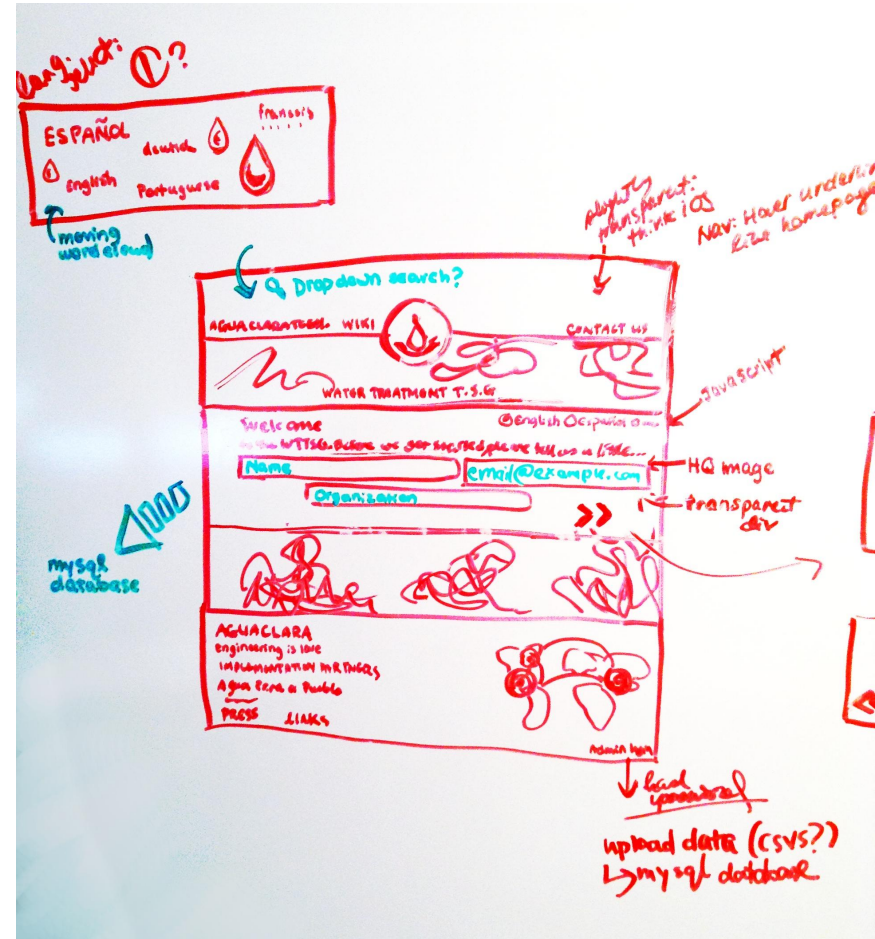 lang. select: ?
ESPAÑOL
français
deutsch
english
Portuguese
moving
word cloud
slightly
transparent:
think iOS
Nav: Hover underline
like homepage
Dropdown search?
WIKI
CONTACT US
WATER TREATMENT T.S.G
Javascript
Welcome
English Español
to the WTTSG. Before we get started, please tell us a little...
Name
email@example.com
Organization
>>
HQ image
transparent
div
mysql
database
AGUACLARA
engineering is love
IMPLEMENTATION PARTNERS
Agua Para el Pueblo
PRESS LINKS
Admin
upload data (CSVS?)
↳ mysql database